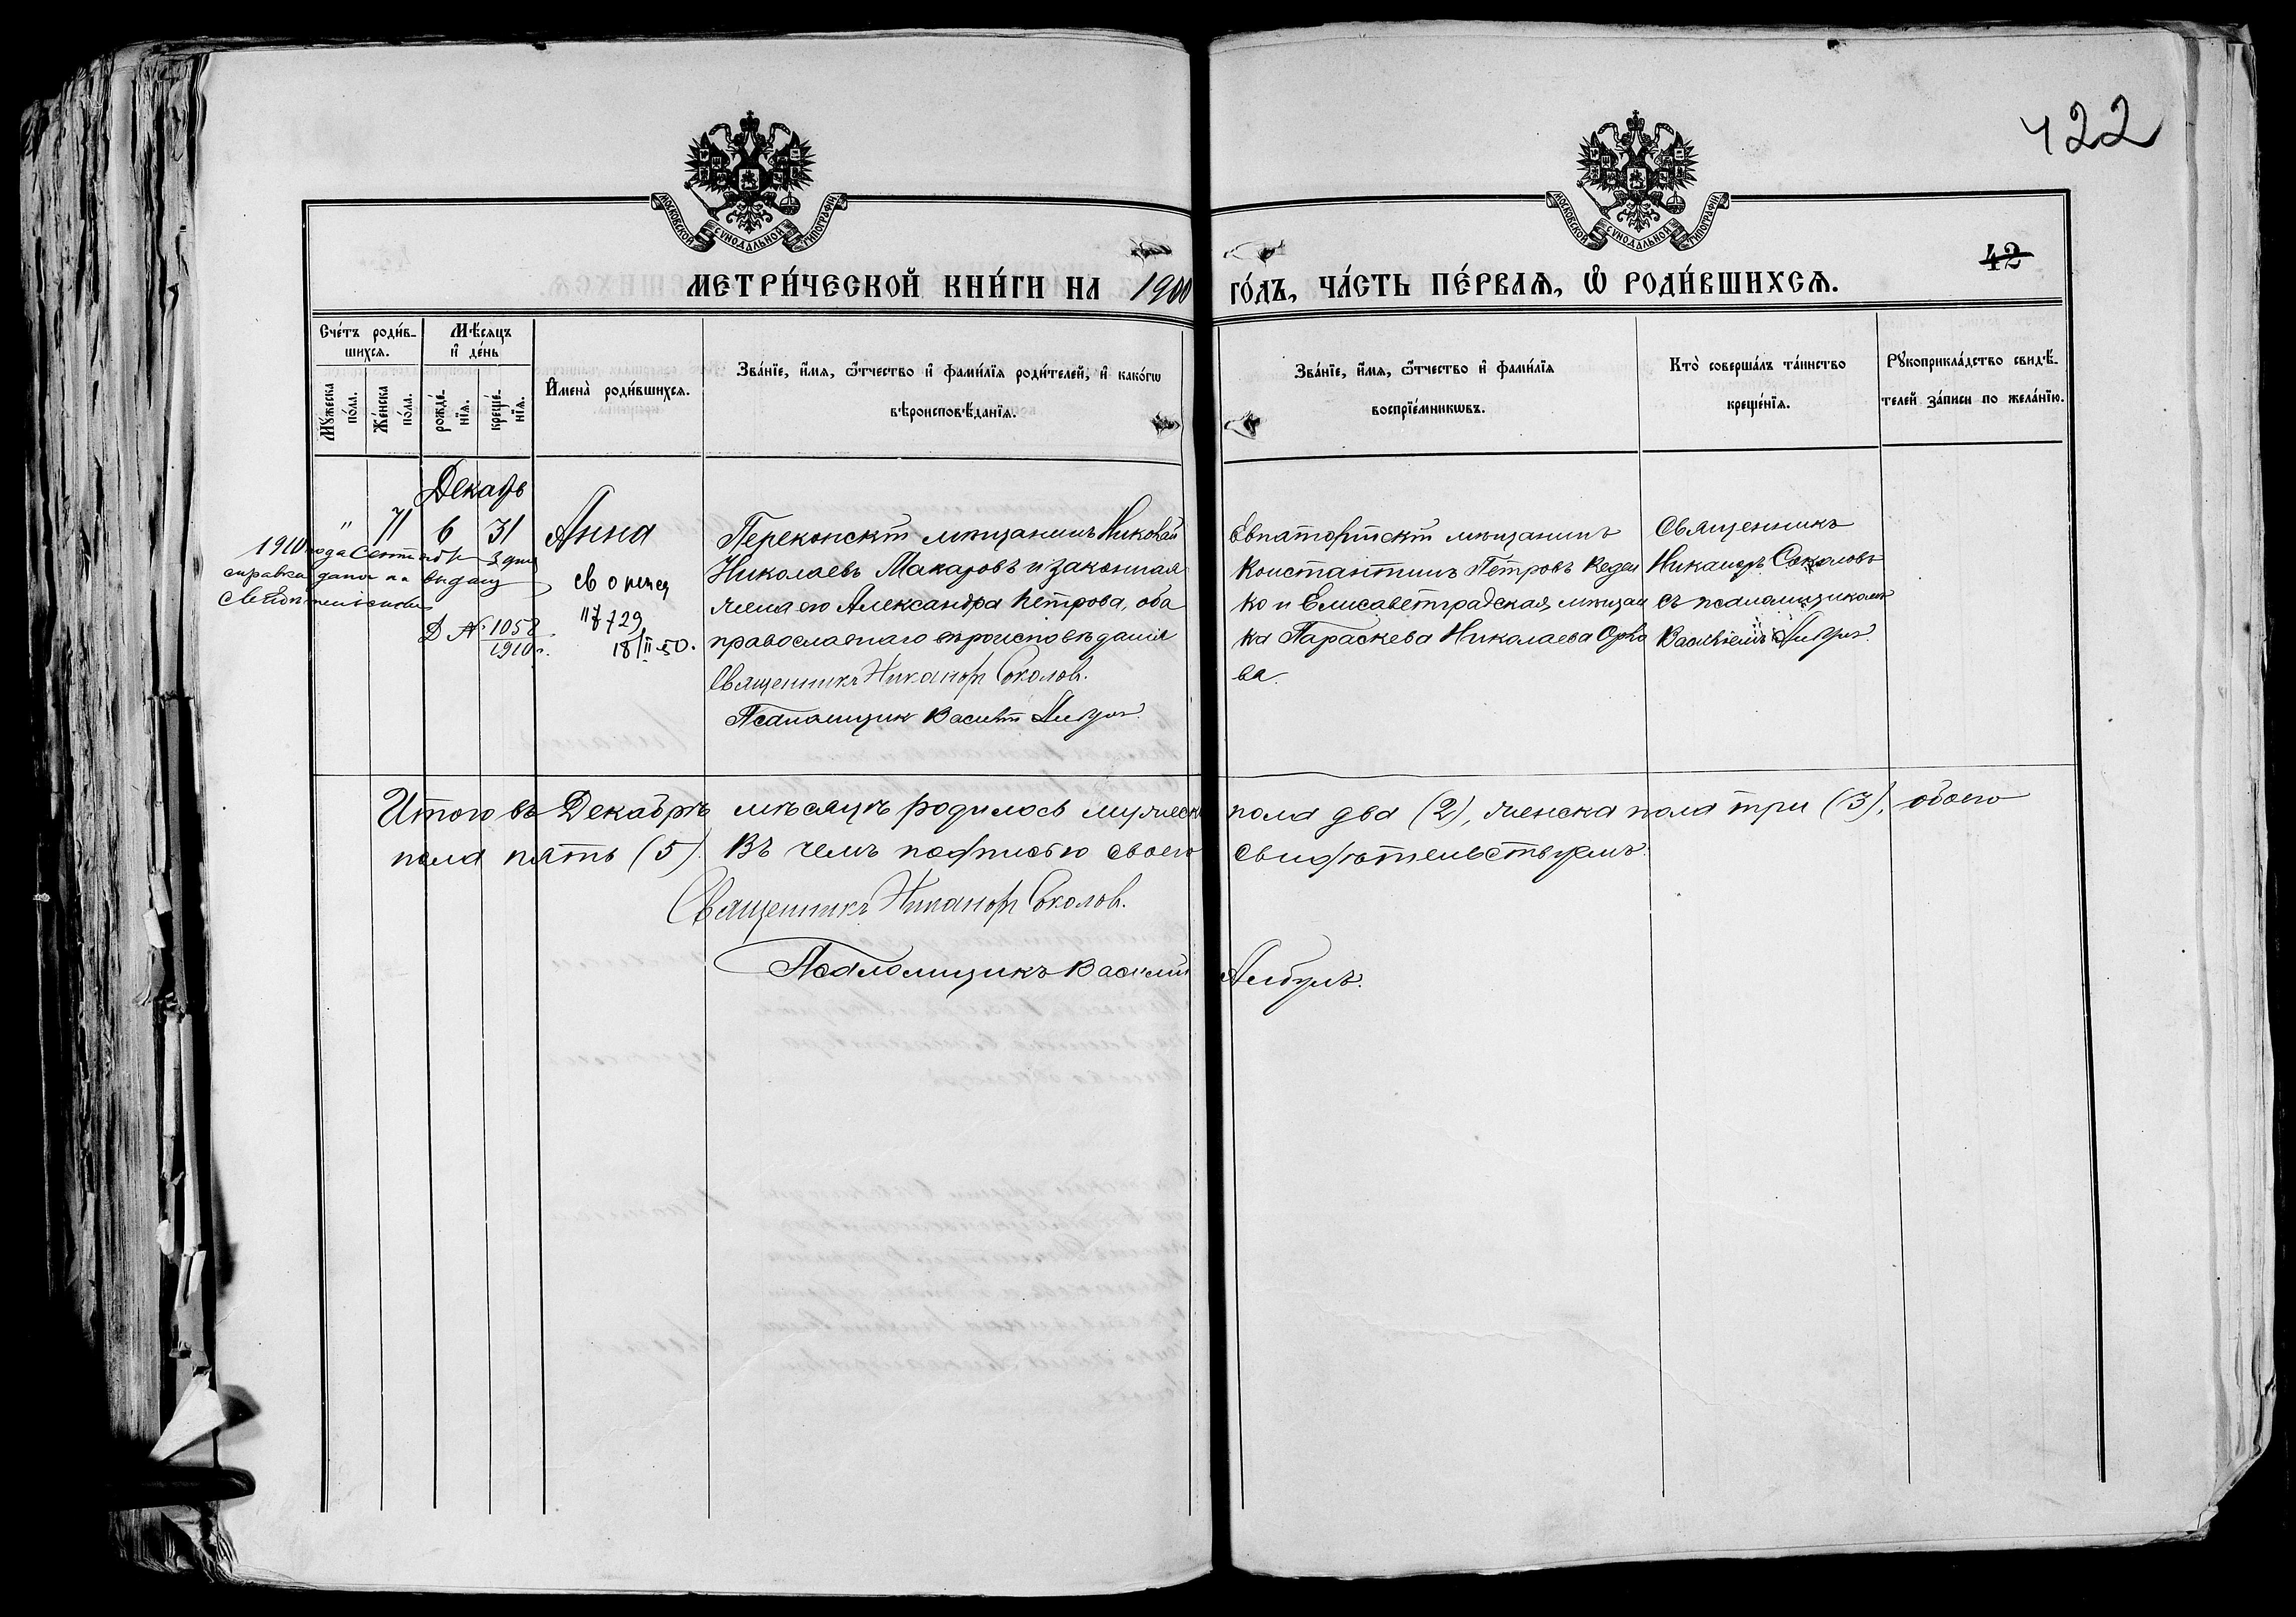 422
МОСКОВСКОЙ СУНОДАЛЬНОЙ ТИПОГРАФІИ
МОСКОВСКОЙ СУНОДАЛЬНОЙ ТИПОГРАФІИ
42
МЕТРИ́ЧЕСКОЙ КНИ́ГИ НА 1900 ГО́ДЪ, ЧА́СТЬ ПЕ́РВАѦ, Ѡ РОДИ́ВШИХСѦ.
Сче́тъ роди́в-
шихсѧ.
Мѣ́сяцъ
и҆ де́нь
Мꙋ́жеска
по́ла.
Же́нска
по́ла.
рожде́-
нїѧ.
креще́-
нїѧ.
И҆мена̀ роди́вшихсѧ.
Зва́нїе, и҆́мѧ, ѻ҆́тчество и҆ фами́лїѧ роди́телей, и҆ како́гѡ
вѣроисповѣ́данїѧ.
Зва́нїе, и҆́мѧ, ѻ҆́тчество и҆ фами́лїѧ
воспрїе́мникѡвъ.
Кто̀ соверша́лъ та́инство
креще́нїѧ.
Рꙋкоприкла́дство свидѣ́-
телей за́писи по жела́нїю.
Декабрь
" 71 6 31 Анна
Перекопскій мѣщанинъ Николай
Николаевъ Макаровъ и законная
жена его Александра Петрова, оба
православнаго вѣроисповѣданія
Священникъ Никаноръ Соколов.
Псаломщик Василій
Евпаторійскій мѣщанинъ
Константинъ Петровъ
ко и Елисаветградская мѣщан
ка Параскева Николаева Орло
ва.
Священникъ
Никаноръ Соколовъ
съ псаломщикомъ
Василіемъ
1910 года Сентября 3 дня
справка дана на выдачу
свидѣтельства
Д № 1058
1910 г.
св о рожд
II 729
18/II-50.
Итого въ Декабрѣ мѣсяцѣ родилось мужеска пола два (2), женска пола три (3), обоего
пола пять (5). Въ чемъ подписью своею свидѣтельствуемъ:
Священникъ Никаноръ Соколов.
Псаломщикъ Василій